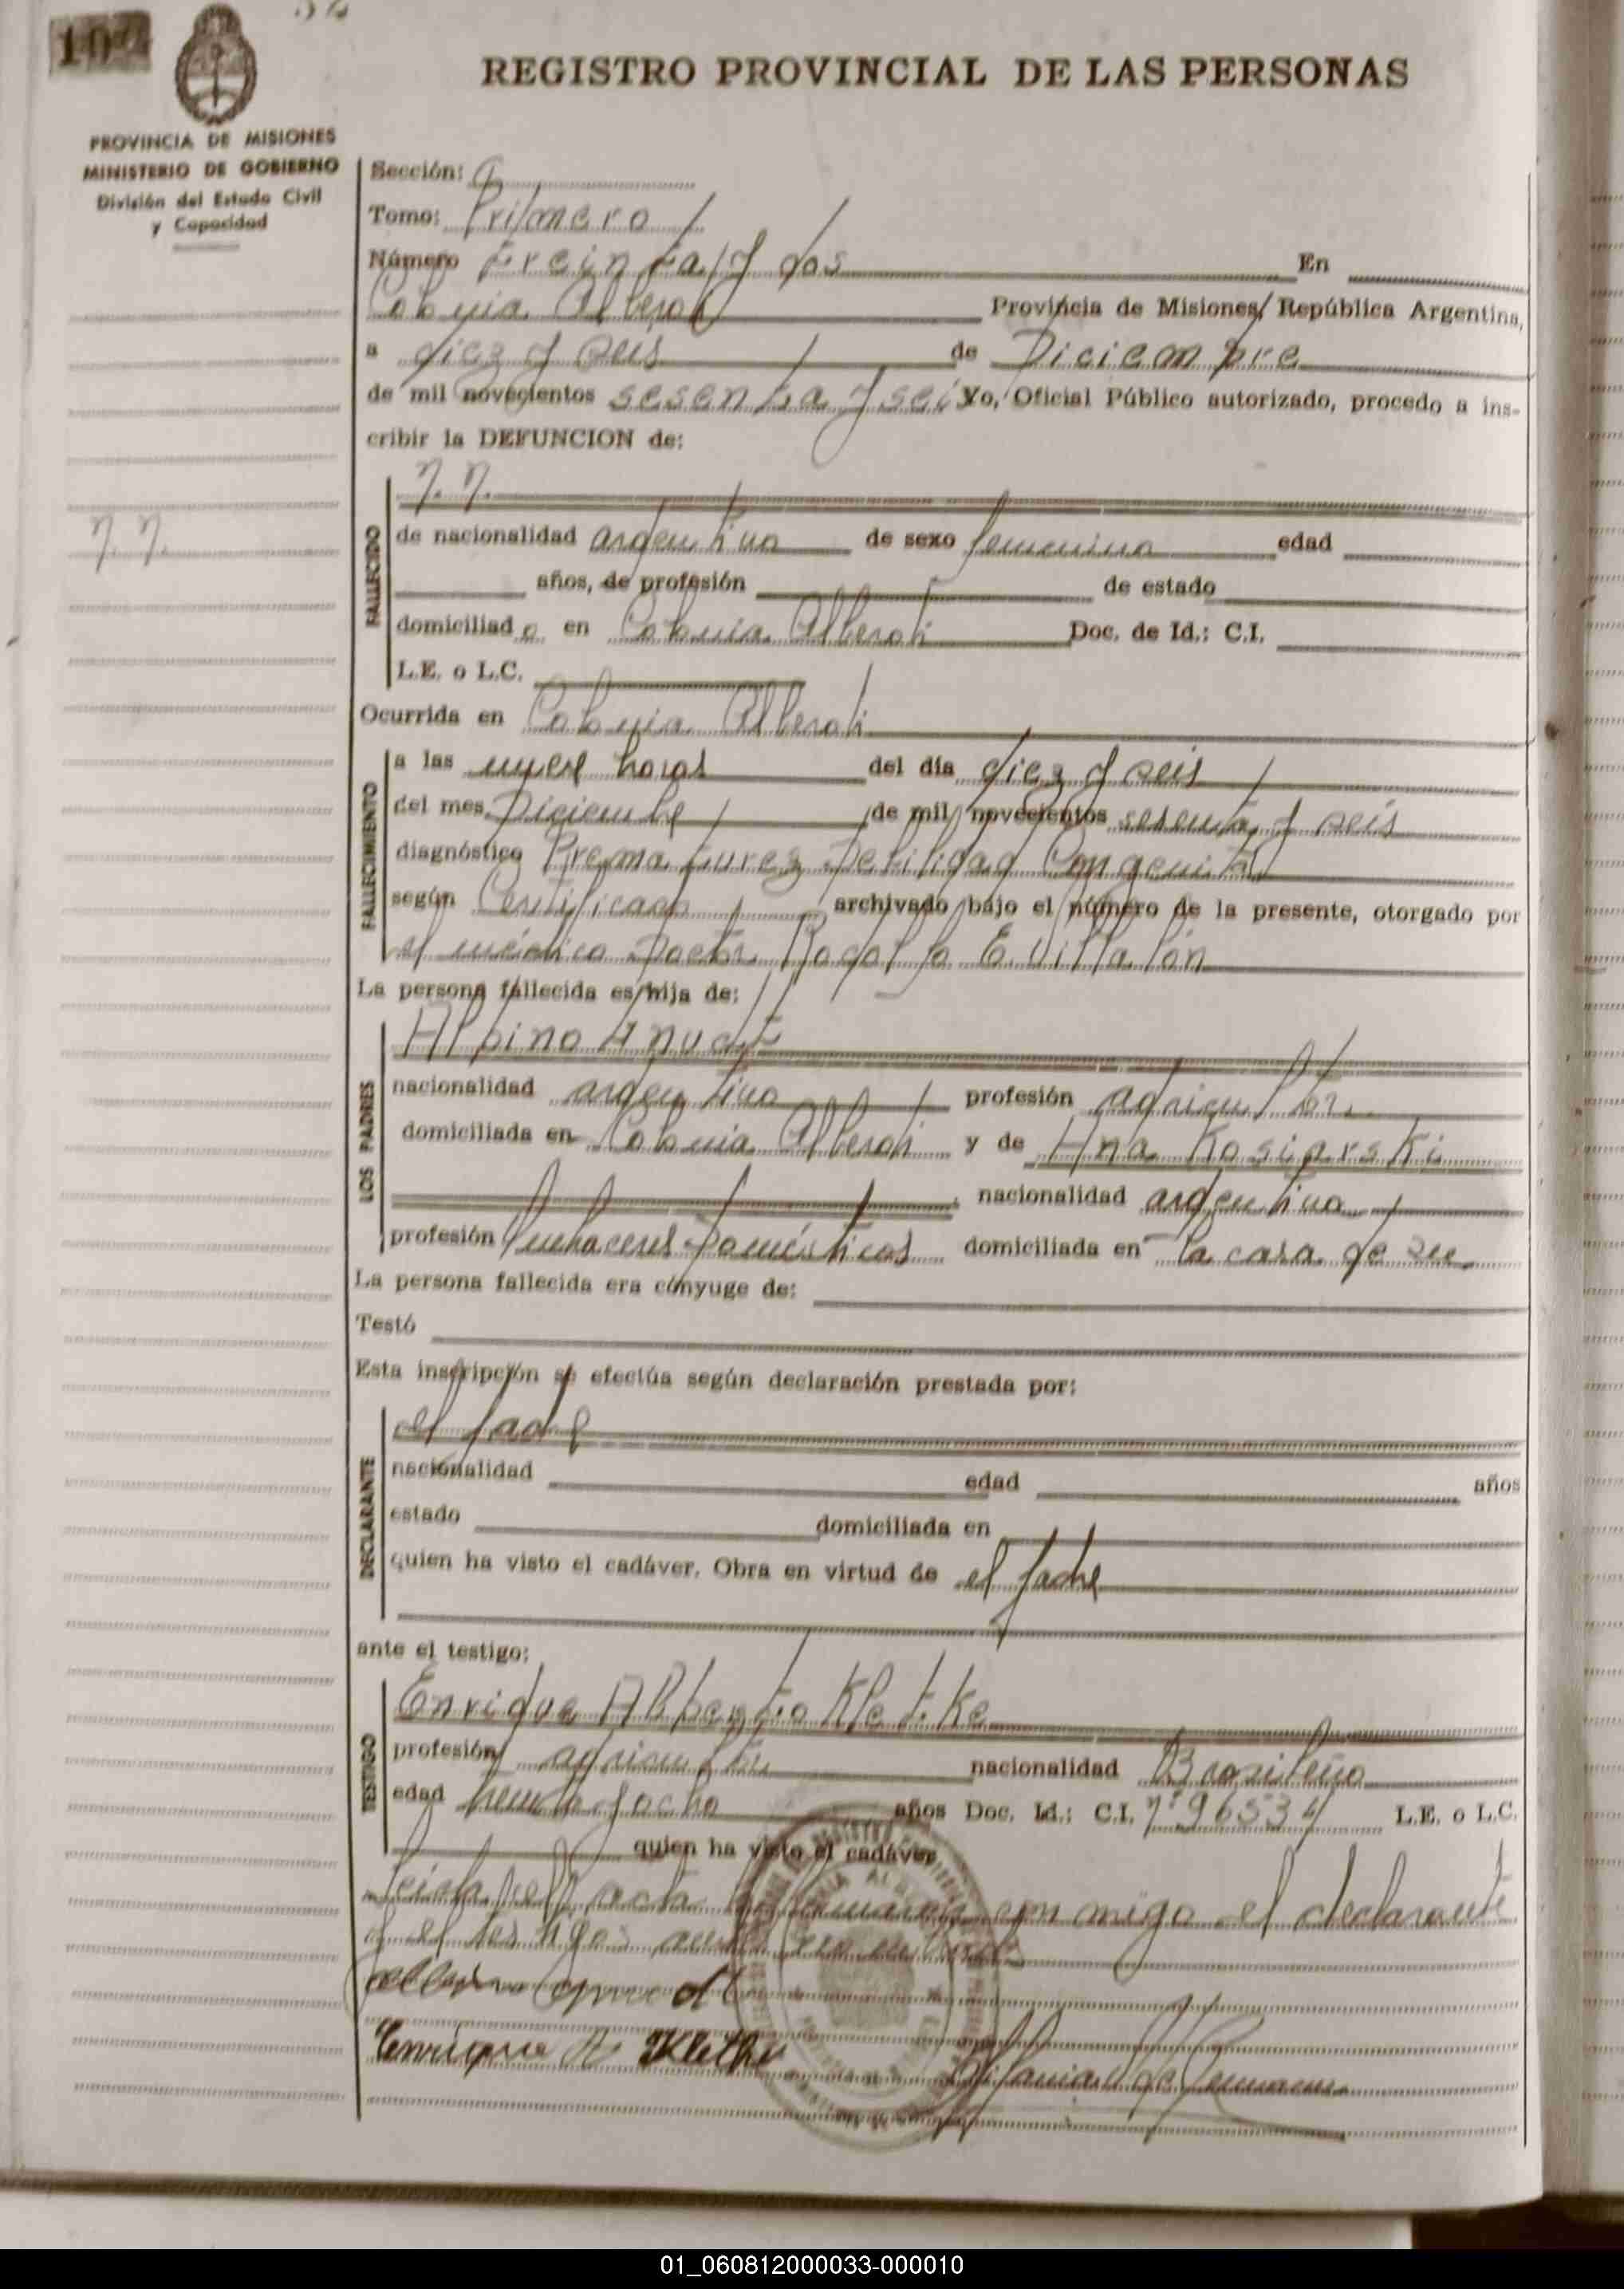 32
107
REGISTRO PROVINCIAL DE LAS PERSONAS
PROVINCIA DE MISIONES
MINISTERIO DE GOBIERNO
División del Estado Civil
y Capacidad
Sección:
Tomo: Primero
Número treinta y dos En
Colonia Alberdi Provincia de Misiones, República Argentina,
a diez y seis de Diciembre
de mil novecientos sesenta y seis Yo, Oficial Público autorizado, procedo a ins-
cribir la DEFUNCION de:
N. N.
N. N.
FALLECIDO
de nacionalidad argentina de sexo femenino edad
años, de profesión de estado
domiciliada en Colonia Alberdi Doc. de Id.: C.I.
L.E. o L.C.
Ocurrida en Colonia Alberdi
FALLECIMIENTO
a las nueve horas del día diez y seis
del mes Diciembre de mil novecientos sesenta y seis
diagnóstico Prematurez Debilidad Congenita
según Certificado archivado bajo el número de la presente, otorgado por
el médico Doctor Rodolfo E. Villalón
La persona fallecida es hija de:
LOS PADRES
Albino
nacionalidad argentino profesión agricultor
domiciliada en Colonia Alberdi y de Ana Kosiarski
nacionalidad argentina
profesión Quehaceres Domésticos domiciliada en la casa de su
La persona fallecida era cónyuge de:
Testó
Esta inscripción se efectúa según declaración prestada por:
DECLARANTE
el padre
nacionalidad edad años
estado domiciliada en
quien ha visto el cadáver. Obra en virtud de el padre
ante el testigo:
TESTIGO
Enrique Alberto Kletke
profesión agricultor nacionalidad Brasileño
edad treinta y ocho años Doc. Id.: C.I. Nº 96534 L.E. o L.C.
quien ha visto el cadáver
Leída el acta la firman conmigo el declarante
y el testigos
Enrique A. Kletke
01_060812000033-000010